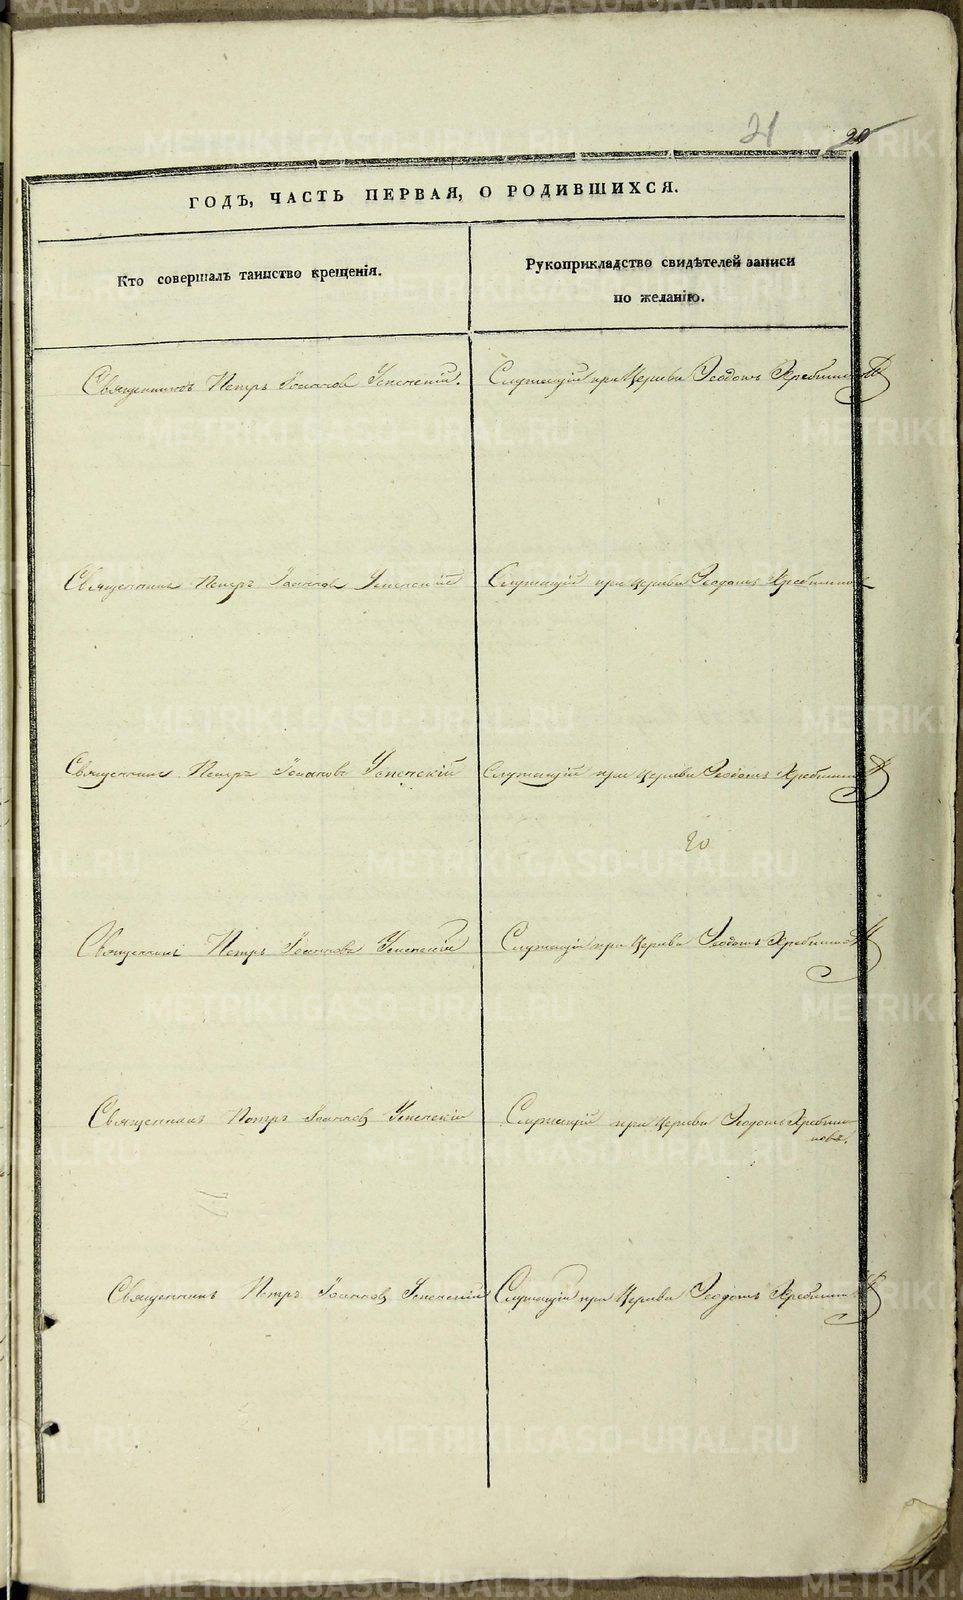 21
20
ГОДЪ, ЧАСТЬ ПЕРВАЯ, О РОДИВШИХСЯ.
Кто совершалъ таинство крещенія.
Рукоприкладство свидѣтелей записи
по желанію.
Священникъ Петръ Іоанновъ Успенскій.
Служащій при Церкви Ѳедотъ
Священникъ Петръ Іоанновъ Успенскій
Служащій при Церкви Ѳедотъ
Священникъ Петръ Іоанновъ Успенскій
Служащій при Церкви Ѳедотъ
20
Священникъ Петръ Іоанновъ Успенскій
Служащій при Церкви Ѳедотъ
Священникъ Петръ Іоанновъ Успенскій
Служащій при Церкви Ѳедотъ
Священникъ Петръ Іоанновъ Успенскій
Служащій при Церкви Ѳедотъ
METRIKI.GASO-URAL.RU